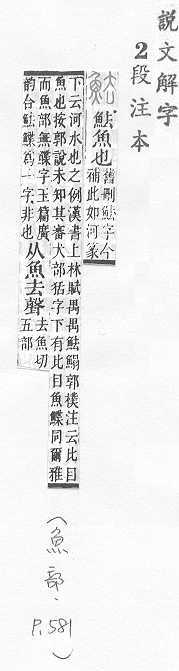 説文解字
2段注本
魼 魼魚也舊刪魼字今補此如河篆
下云河水也之例漢書上林賦禺禺魼鰨郭樸注云比目
魚也按郭說未知其審犬部狧字下有比目魚鰈同爾雅
而魚部無鰈字玉篇廣
韵合魼鰈爲一字非也从魚去聲去魚切五部
(魚部、P.581)